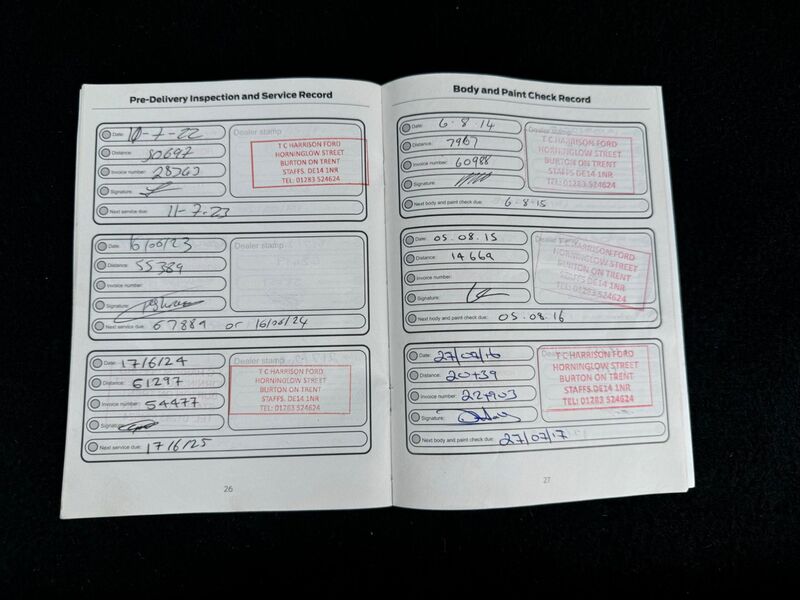 Pre-Delivery Inspection and Service Record
Date: 10-7-22
Distance: 50697
Invoice number: 28363
Signature:
Next service due: 11-7-23
Dealer stamp
T C HARRISON FORD
HORNINGLOW STREET
BURTON ON TRENT
STAFFS. DE14 1NR
TEL: 01283 524624
Date: 16/06/23
Distance: 55389
Invoice number:
Signature:
Next service due: 67889 or 16/06/24
Dealer stamp
Date: 17/6/24
Distance: 61297
Invoice number: 54477
Signature:
Next service due: 17/6/25
Dealer stamp
T C HARRISON FORD
HORNINGLOW STREET
BURTON ON TRENT
STAFFS. DE14 1NR
TEL: 01283 524624
26
Body and Paint Check Record
Date: 6.8.14
Distance: 7967
Invoice number: 60988
Signature:
Next body and paint check due: 6.8.15
Dealer stamp
T C HARRISON FORD
HORNINGLOW STREET
BURTON ON TRENT
STAFFS. DE14 1NR
TEL: 01283 524624
Date: 05.08.15
Distance: 14669
Invoice number:
Signature:
Next body and paint check due: 05.08.16
Dealer
T C HARRISON FORD
HORNINGLOW STREET
BURTON ON TRENT
STAFFS. DE14 1NR
TEL: 01283 524624
Date: 27/07/16
Distance: 20439
Invoice number: 227903
Signature:
Next body and paint check due: 27/07/17
Dealer stamp
T C HARRISON FORD
HORNINGLOW STREET
BURTON ON TRENT
STAFFS. DE14 1NR
TEL: 01283 524624
27